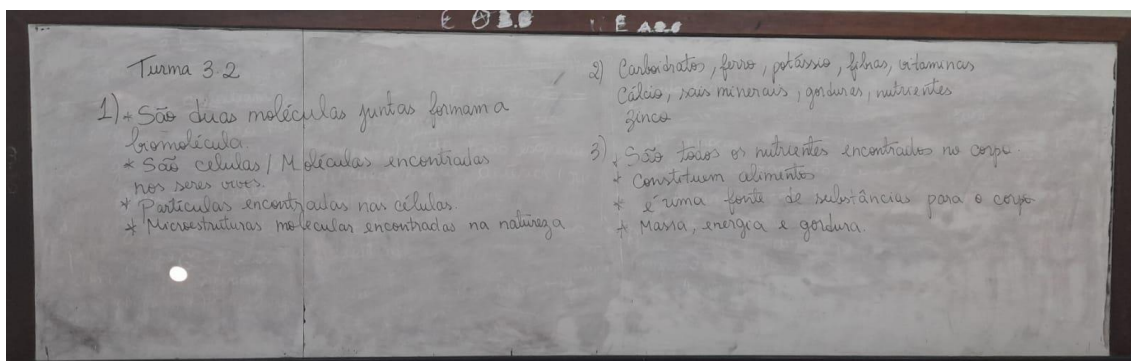 Turma 3.2
1) * São duas moléculas juntas formam a
biomolécula.
* São células / Moléculas encontradas
nos seres vivos.
* Partículas encontradas nas células.
* Microestruturas moleculares encontradas na natureza
2) Carboidratos, ferro, potássio, fibras, vitaminas
Cálcio, sais minerais, gorduras, nutrientes
zinco
3) * São todos os nutrientes encontrados no corpo.
* Constituem alimentos
* é uma fonte de substâncias para o corpo
* Massa, energia e gordura.